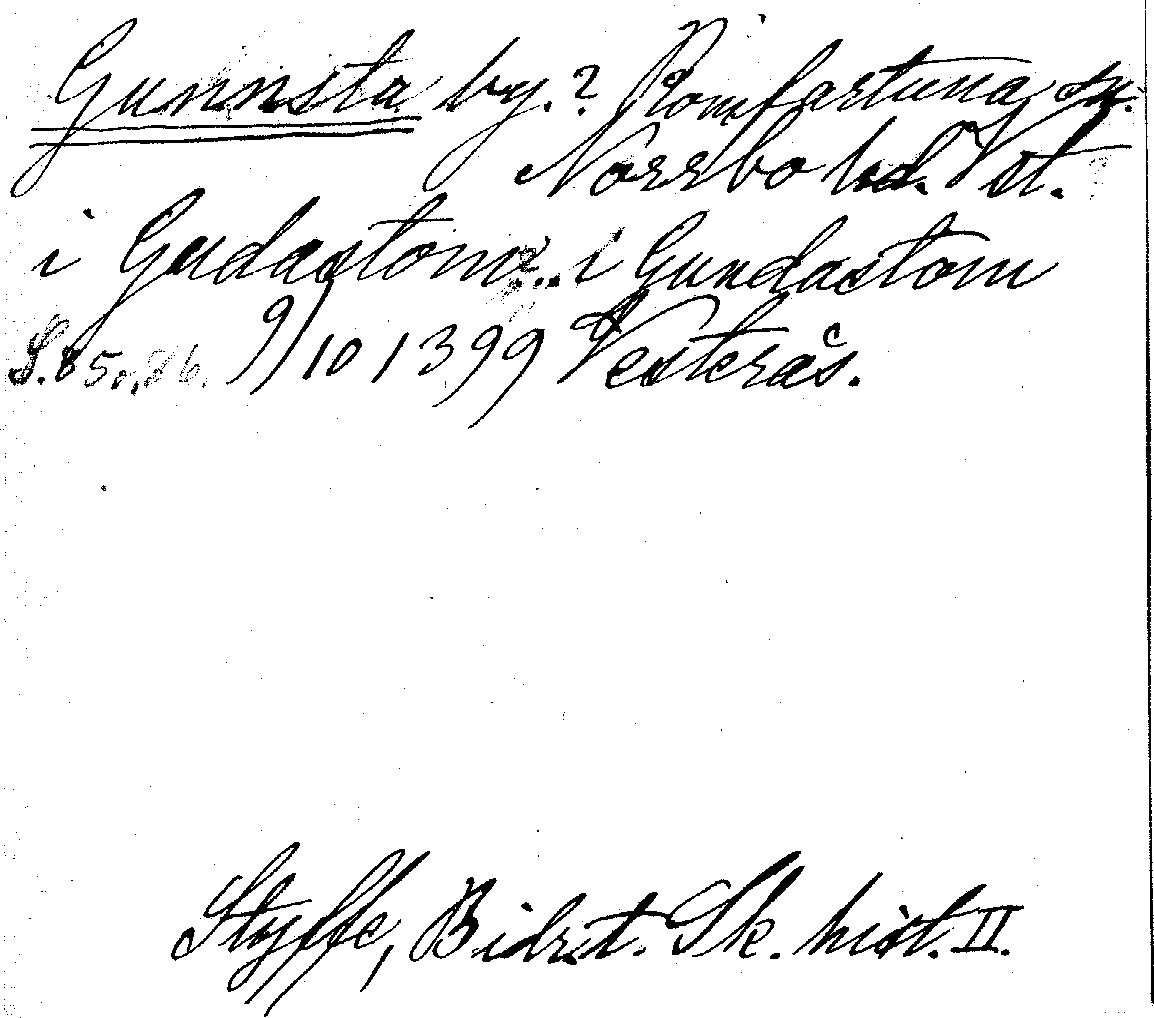 Gunnsta by.? Romfartuna sn.
Norrbo hd. Vst.
i Gudastoma.. i Gundastom
S. 85, 86. 9/10 1399 Vesterås.
Styffe, Bidr. t. Sk. hist. II.